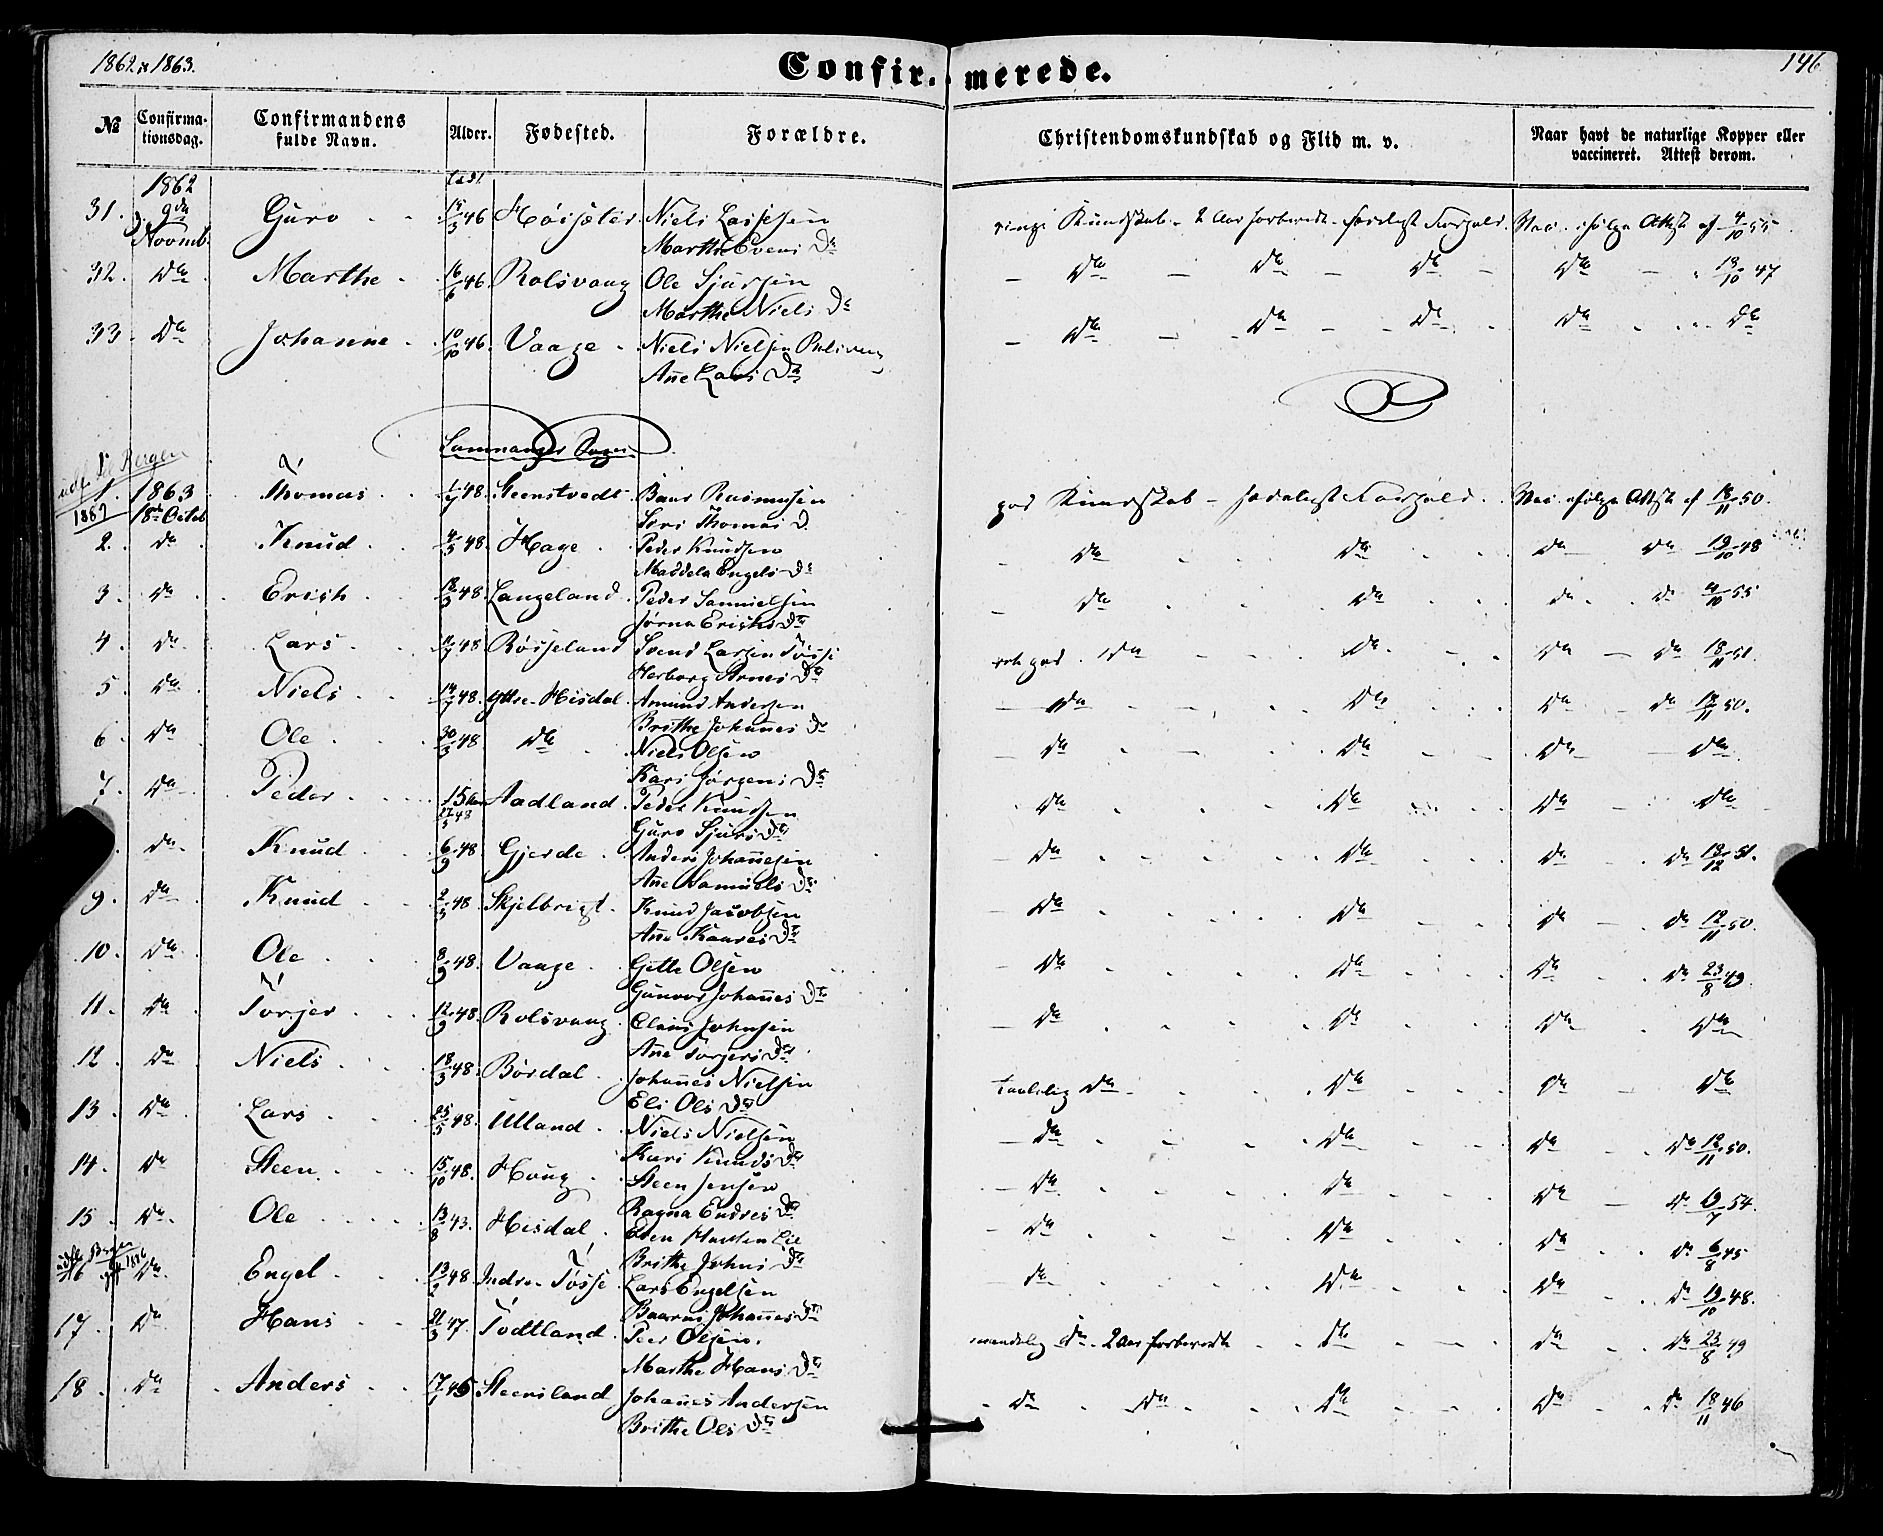 1862 & 1863.
Confirmerede.
146
№ Confirmationsdag. Confirmandens fulde Navn. Alder. Fødested. Forældre. Christendomskundskab og Flid m. v. Naar havt de naturlige Kopper eller vaccineret. Attest derom.
1862 født
31. 9de Novmb. Guro 15/3 46 Høisæter Niels Larssen Kundskab - 2 Aar forberedt - Forhold. Vacc. ifølge Attest af 4/10 55
Marthe Svens Dr
32. Do Marthe 16/6 46 Rolsvaag Ole Sjursen Do Do Do Do 13/10 47
Marthe Niels Dr
33 Do Johanne 10/10 46. Vaage Niels Nielsen Do Do Do Do Do
Ane Lars Dr
Samnanger Sogn
udfl. Bergen 1882
1. 1863 18de Octob Thomas 1/7 48. Steenstvedt Rasmussen god Kundskab - Forhold. Vacc. ifølge Attest af 18/11 50.
Siri Thomas D.
2. do Knud 4/5 48. Hage Peder Knudsen Do Do Do Do 19/10 48
Maddela Engels Dr
3. Do Erich 18/3 48. Langeland Peder Samuelsen Do Do do do 4/10 55
Jørna Erichs Dr
4. Do Lars 11/7 48 Røsseland Svend Larsen Tøsse god Do Do Do Do 18/11 51.
Herborg Arnes Dr
5. Do Niels 14/7 48. Yttre Hisdal Amund Andersen Do Do Do Do 12/11 50.
Brithe Johannes Dr
6. Do Ole 30/3 48 Do Niels Olsen Do Do Do Do
Kari Jørgens Dr
7. Do Peder 15 Aar 27/5 48 Aadland Peder Knudsen Do Do Do Do
Guro Sjurs Dr
Do Knud 6/9 48 Gjerde Anders Johannesen Do Do Do Do 13/12 51.
Ane Samuels Dr
9. Do Knud 2/5 48 Skjelbrigt Knud Jacobsen Do Do Do Do 12/11 50.
Ane Knudes Dr
10. Do Ole 8/9 48. Vaage Gitle Olsen Do Do Do Do 23/8 49.
Gunvor Johannes Dr
11. Do Torjer 12/9 48. Rolsvaag Claus Johnsen Do Do Do Do
Ane Torjers Dr
12. Do Niels 18/3 48. Børdal Johanes Nielsen taalelig Do Do Do Do
Eli Ols Dr
13. Do Lars 25/5 48. Ulland Niels Nielsen Do Do Do Do 12/11 50.
Kari Knuds Dr
14. Do Steen 15/10 48. Houg Steen Jensen Do Do Do D. 19/7 54.
Ragna Endres Dr
15 Do Ole 13/8 43. Hisdal Lie Do Do Do Do 6/8 45
Brithe Johns Dr
16 Do Engel 13/2 48 Indre Tøsse Lars Engelsen Do Do Do Do 19/10 48.
Johanes Dr
17. Do Hans 21/3 47. Todtland Peer Olsen. maadelig Do. 2 Aar forberedt Do Do Do 23/8 49
Marthe Hans Dr
18. Do Anders 17/1 45 Steensland Johanes Andersen Do Do Do Do Do 18/11 46
Brithe Ols Dr